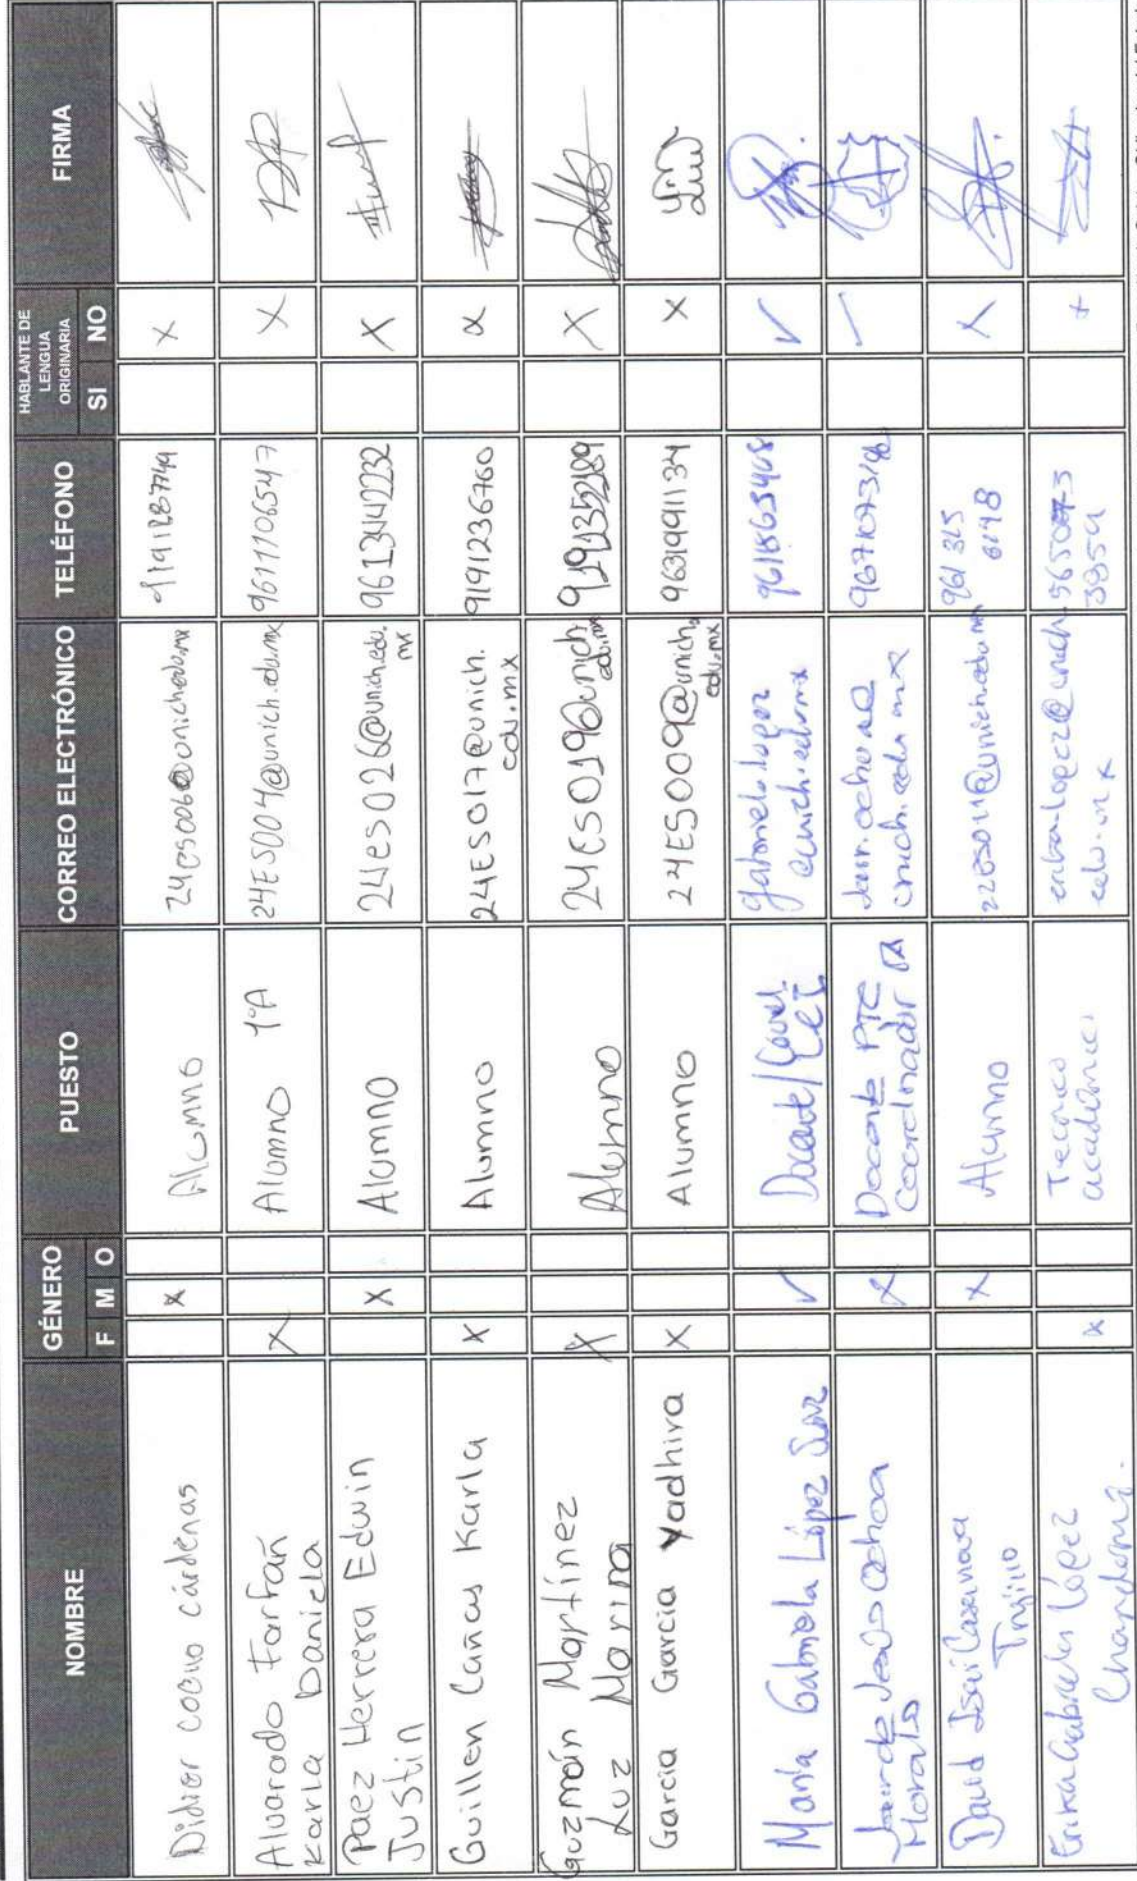 NOMBRE
GÉNERO
F M O
PUESTO
CORREO ELECTRÓNICO
TELÉFONO
HABLANTE DE
LENGUA
ORIGINARIA
SI NO
FIRMA
Didier cocho cárdenas
x
Alumno
24es006@unich.edu.mx
9191287749
x
Alvarado Farfán
Karla Daniela
x
Alumno 1°A
24ES004@unich.edu.mx
9611106547
x
Paez Herrera Edwin
Justin
x
Alumno
24es026@unich.edu.
mx
9613442232
x
Guillen Cañas Karla
x
Alumno
24ES017@unich.
edu.mx
9191236760
x
Guzmán Martínez
Luz Marina
x
Alumno
24ES019@unich
edu.mx
9191352189
x
Garcia Garcia Yadhira
x
Alumno
24ES009@unich.
edu.mx
9631991134
x
María Gabriela López
✓
Docente/
gabriela.lopez
@unich.edu.mx
9618653468
✓
de Jesús Ochoa
Morales
x
Docente PTC
Coordinador
unich.edu.mx
x
David Isaí
Trujillo
x
Alumno
22ES011@unich.edu.mx
961 315
6198
x
Erika Gabriela López
x
Tecnico
academico
erika.lopez@unich
edu.mx
3859
x